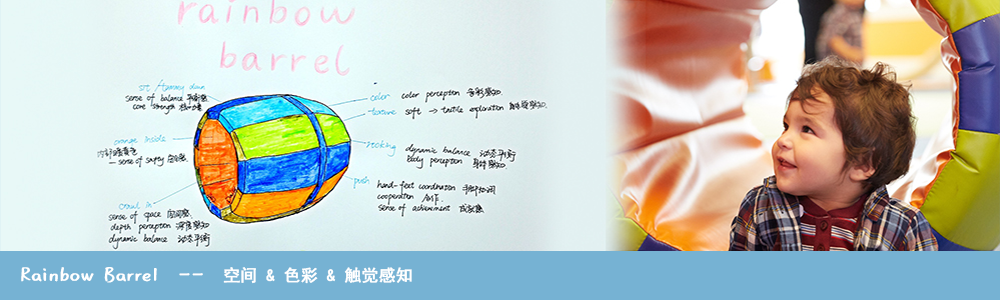 rainbow
barrel
sit / tummy down
sense of balance 平衡感
core strength 核心力量
orange inside
内部橙黄色
— sense of safety 安全感
crawl in
sense of space 空间感
depth perception 深度感知
dynamic balance 动态平衡
color color perception 色彩感知
texture soft → tactile exploration 触觉感知
rocking dynamic balance 动态平衡
body perception 身体感知
push hand-feet coordination 手脚协调
cooperation 合作
sense of achievement 成就感
Rainbow Barrel -- 空间 & 色彩 & 触觉感知